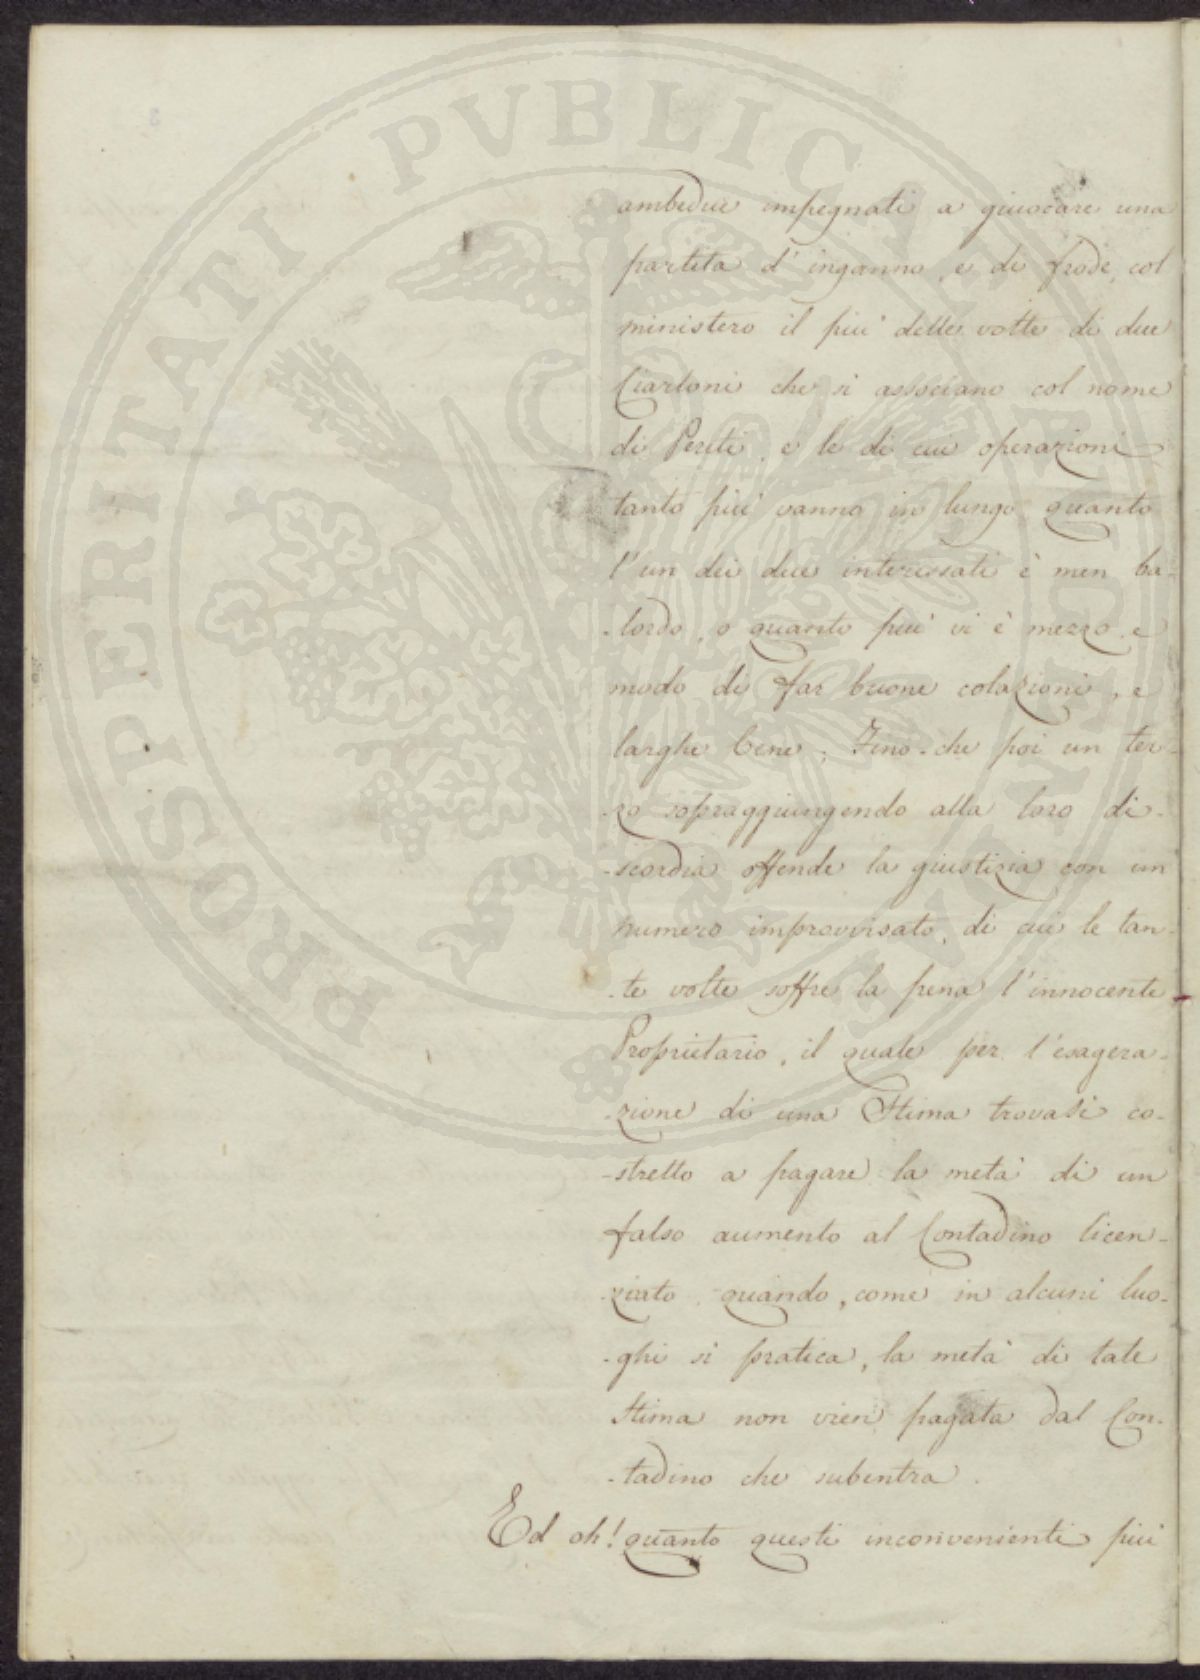 ambedue impegnati a giuocare una
partita d'inganno, e di frode, col
ministero il piu' delle volte di due
Ciarloni che si associano col nome
di Periti, e le di cui operazioni
tanto piu' vanno in lungo quanto
l'un dei due interessati è men ba-
-lordo, o quanto piu' vi è mezzo, e
modo di far buone colazioni, e
larghe Cene; Fino-che poi un ter-
-zo sopraggiungendo alla loro di-
-scordia offende la giustizia con un
numero improvvisato, di cui le tan-
-te volte soffre la pena l'innocente
Proprietario, il quale per l'esagera-
-zione di una Stima trovasi co-
-stretto a pagare la meta' di un
falso aumento al Contadino licen-
-ziato quando, come in alcuni luo-
-ghi si pratica, la meta' di tale
Stima non vien pagata dal Con-
-tadino che subentra.
Ed oh! quanto questi inconvenienti piu
PROSPERITATI PVBLICAE AVGENDAE